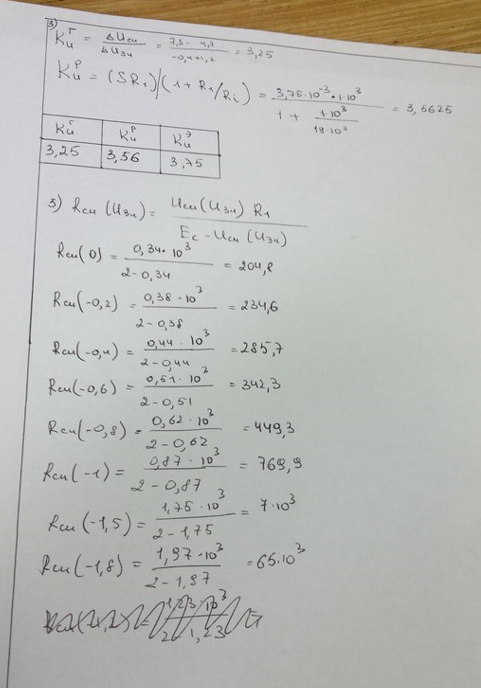 3)
Kᵤᴦ = ΔUси / ΔUзи = 7,3 - 4,7 / -0,4+1,2 = 3,25
Kᵤᴾ = (SR₁)/(1 + R₁/Ri) = 3,75·10⁻³·1·10³ / 1 + 1·10³/18·10³ = 3,5625
Kᵤᴦ Kᵤᴾ Kᵤᶟ
3,25 3,56 3,75
5) Rси (Uзи) = Uси(Uзи) R₁ / Ec - Uси (Uзи)
Rси(0) = 0,34·10³ / 2-0,34 = 204,8
Rси(-0,2) = 0,38·10³ / 2-0,38 = 234,6
Rси(-0,4) = 0,44·10³ / 2-0,44 = 285,7
Rси(-0,6) = 0,51·10² / 2-0,51 = 342,3
Rси(-0,8) = 0,62·10³ / 2-0,62 = 449,3
Rси(-1) = 0,87·10³ / 2-0,87 = 769,9
Rси(-1,5) = 1,75·10³ / 2-1,75 = 7·10³
Rси(-1,8) = 1,97·10³ / 2-1,97 = 65·10³